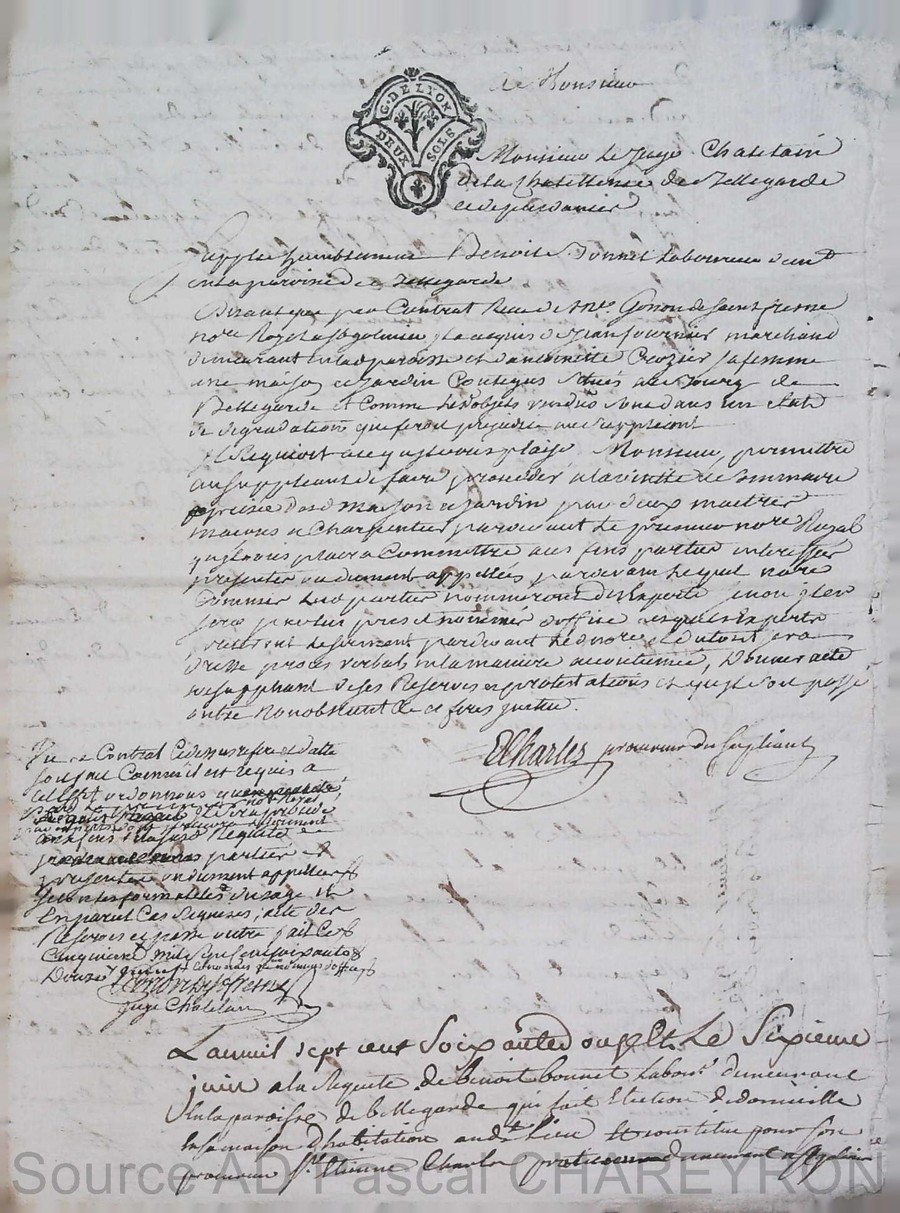 G. DE LYON
DEUX SOLS
de Monsieur
Monsieur le Juge Chatelain
de la Chatellenie de Bellegarde
Supplie humblement Benoit Bonnet laboureur demt
en la paroisse de Bellegarde
Disant que par Contrat Reçu de Me Gonon de Saint fresne
nore Royal a St galmier il a acquis de Jean fournier marchand
demeurant en lad paroisse et d'antoinette Crozier sa femme
une maison et Jardin Contegus situés au Bourg de
Bellegarde et Comme lesd objets vendus sont dans un Etat
de degradation qui feroit prejudice au Suppliant
Il Requiert a ce qu'il vous plaise Monsieur, permettre
au suppliant de faire proceder a la visitte et sommaire
prisée desd maison et Jardin par deux maitres
macons et Charpentier pardevant le premier nore Royal
qu'il vous plaira Commettre aux fins parties interessées
presentes ou duement appellées pardevant lequel nore
Commis lesd parties nommeront des Experts sinon il en
sera pris et nommé d'office lesquels Experts
pretteront le serment pardevant led nore et du tout sera
dressé procés verbal en la maniere accoutumée, Donner acte
au suppliant de ses Reserves et protestations et qu'il soit passé
outre nonobstant &c et ferés justice.
ECharles procureur du supliant
Vu le Contrat cy dessus refferé et datté
ordonnons que
nore Royal,
aux fins de lad Requete
parties
presentes ou duement appellées
selon les formalités d'usage et
En pareil Cas Requises, acte des
Reserves et passé outre fait ce
Cinquieme mil sept cent soixante
Douze
Juge Chatelain
L'an mil sept cent Soixante douze et Le Sixieme
juin a la Requete de benoit bonnet labour demeurant
En la paroisse de bellegarde qui fait Election de domicille
En sa maison d'habitation aud lieu et constitue pour son
procureur Sr Etienne Charles demeurant a St galmier
Source AD Pascal CHAREYRON